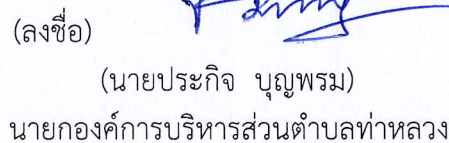 (ลงชื่อ)
(นายประกิจ บุญพรม)
นายกองค์การบริหารส่วนตำบลท่าหลวง